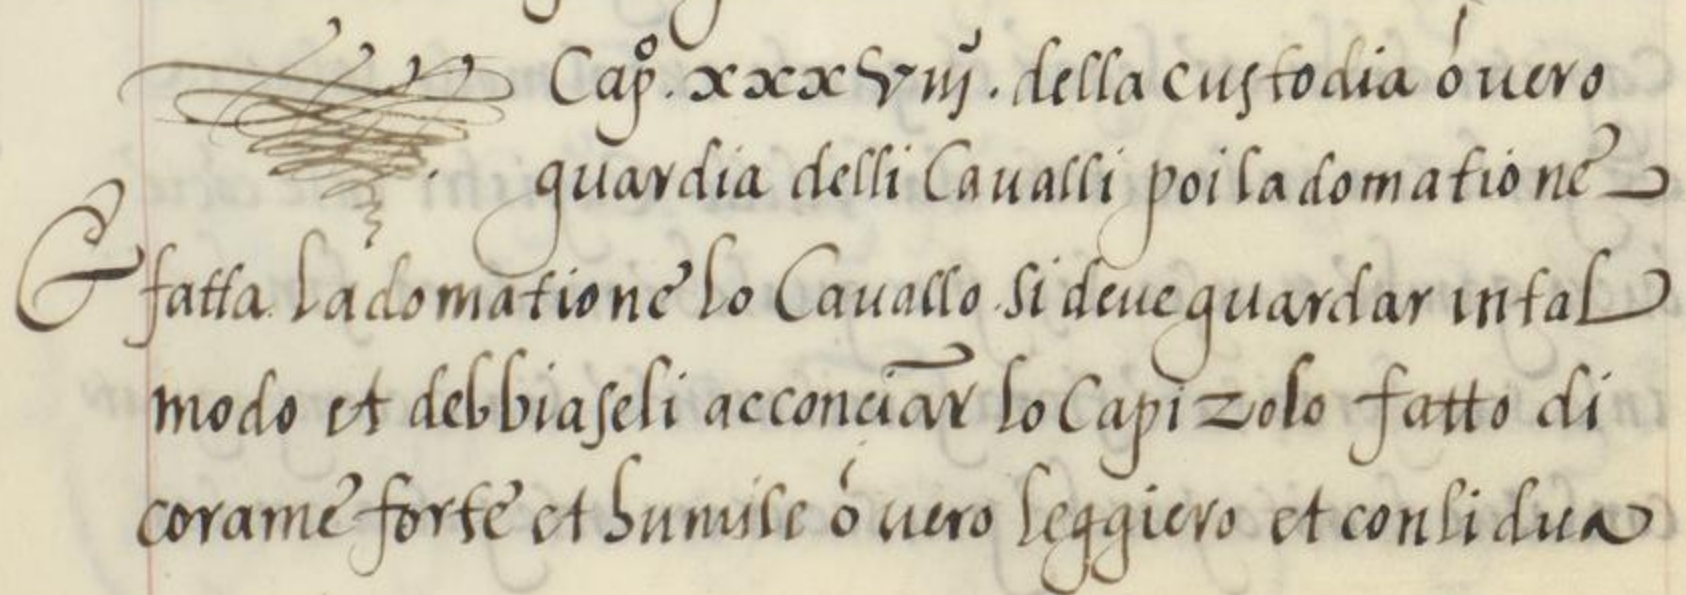 Cap.º xxxviij. della custodia ó uero
guardia delli Caualli poi la domatione
Et fatta la domatione lo Cauallo si deue guardar in tal
modo et debbiaseli acconciar lo Capizolo fatto di
corame forte et humile ó uero leggiero et con li dua